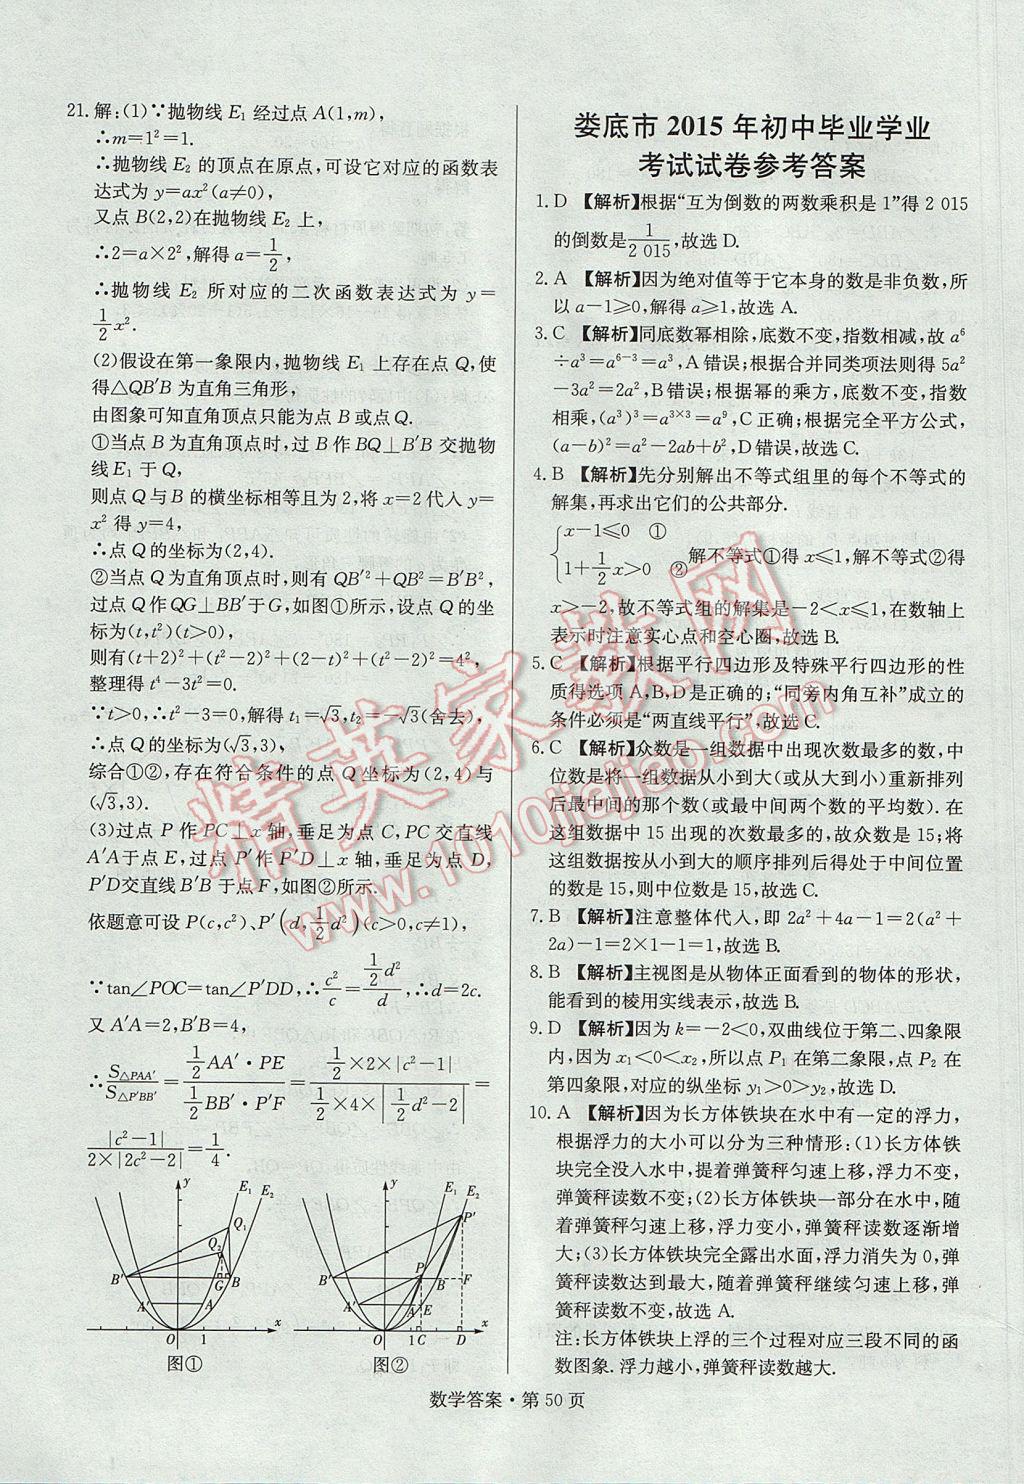 21. 解:(1)∵抛物线 E₁ 经过点 A(1,m),
∴m=1²=1.
∴抛物线 E₂ 的顶点在原点,可设它对应的函数表
达式为 y=ax²(a≠0),
又点 B(2,2)在抛物线 E₂ 上,
∴2=a×2²,解得 a=1/2,
∴抛物线 E₂ 所对应的二次函数表达式为 y=
1/2x².
(2)假设在第一象限内,抛物线 E₁ 上存在点 Q,使
得△QB′B 为直角三角形,
由图象可知直角顶点只能为点 B 或点 Q.
①当点 B 为直角顶点时,过 B 作 BQ⊥B′B 交抛物
线E₁ 于 Q,
则点 Q 与 B 的横坐标相等且为 2,将 x=2 代入 y=
x² 得 y=4,
∴点 Q 的坐标为(2,4).
②当点 Q 为直角顶点时,则有 QB′²+QB²=B′B²,
过点 Q 作 QG⊥BB′于 G,如图①所示,设点 Q 的坐
标为(t,t²)(t>0),
则有(t+2)²+(t²-2)²+(2-t)²+(t²-2)²=4²,
整理得 t⁴-3t²=0.
∵t>0,∴t²-3=0,解得 t₁=√3,t₂=-√3(舍去),
∴点 Q 的坐标为(√3,3)、
综合①②,存在符合条件的点 Q 坐标为(2,4)与
(√3,3).
(3)过点 P 作 PC⊥x 轴,垂足为点 C,PC 交直线
A′A于点 E,过点 P′作 P′D⊥x 轴,垂足为点 D,
P′D交直线B′B 于点 F,如图②所示.
依题意可设 P(c,c²)、P′(d,1/2d²)(c>0,c≠1),
∵tan∠POC=tan∠P′DD,∴c²/c=(1/2d²)/d,∴d=2c.
又 A′A=2,B′B=4,
∴S△PAA′/S△P′BB′=(1/2AA′·PE)/(1/2BB′·P′F)=(1/2×2×|c²-1|)/(1/2×4×|1/2d²-2|)=
|c²-1|/(2×|2c²-2|)=1/4.
y E₁ E₂ Q₁ Q₂ B′ G B A′ A O 1 x
y E₁ E₂ P′ B′ P B F A′ A E O 1 C D x
图① 图②
娄底市 2015 年初中毕业学业
考试试卷参考答案
1. D 【解析】根据“互为倒数的两数乘积是 1”得 2 015
的倒数是1/2 015,故选 D.
2. A 【解析】因为绝对值等于它本身的数是非负数,所
以 a-1≥0,解得 a≥1,故选 A.
3. C 【解析】同底数幂相除,底数不变,指数相减,故 a⁶
÷a³=a⁶⁻³=a³,A 错误;根据合并同类项法则得 5a²
-3a²=2a²,B错误;根据幂的乘方,底数不变,指数
相乘,(a³)³=a³ˣ³=a⁹,C 正确;根据完全平方公式,
(a-b)²=a²-2ab+b²,D错误,故选 C.
4. B 【解析】先分别解出不等式组里的每个不等式的
解集,再求出它们的公共部分.
{x-1≤0 ①
1+1/2x>0 ② 解不等式①得 x≤1,解不等式②得
x>-2,故不等式组的解集是-2<x≤1,在数轴上
表示时注意实心点和空心圈,故选 B.
5. C 【解析】根据平行四边形及特殊平行四边形的性
质得选项 A,B,D 是正确的;“同旁内角互补”成立的
条件必须是“两直线平行”,故选 C.
6. C 【解析】众数是一组数据中出现次数最多的数,中
位数是将一组数据从小到大(或从大到小)重新排列
后最中间的那个数(或最中间两个数的平均数).在
这组数据中 15 出现的次数最多的,故众数是 15;将
这组数据按从小到大的顺序排列后得处于中间位置
的数是 15,则中位数是 15,故选 C.
7. B 【解析】注意整体代入,即 2a²+4a-1=2(a²+
2a)-1=2×1-1=1,故选 B.
8. B 【解析】主视图是从物体正面看到的物体的形状,
能看到的棱用实线表示,故选 B.
9. D 【解析】因为 k=-2<0,双曲线位于第二、四象限
内,因为 x₁<0<x₂,所以点 P₁ 在第二象限,点 P₂ 在
第四象限,对应的纵坐标 y₁>0>y₂,故选 D.
10. A 【解析】因为长方体铁块在水中有一定的浮力,
根据浮力的大小可以分为三种情形:(1)长方体铁
块完全没入水中,提着弹簧秤匀速上移,浮力不变,
弹簧秤读数不变;(2)长方体铁块一部分在水中,随
着弹簧秤匀速上移,浮力变小,弹簧秤读数逐渐增
大;(3)长方体铁块完全露出水面,浮力消失为 0,弹
簧秤读数达到最大,随着弹簧秤继续匀速上移,弹簧
秤读数不变,故选 A.
注:长方体铁块上浮的三个过程对应三段不同的函
数图象.浮力越小,弹簧秤读数越大.
数学答案·第 50 页
精英家教网
www.1010jiajiao.com